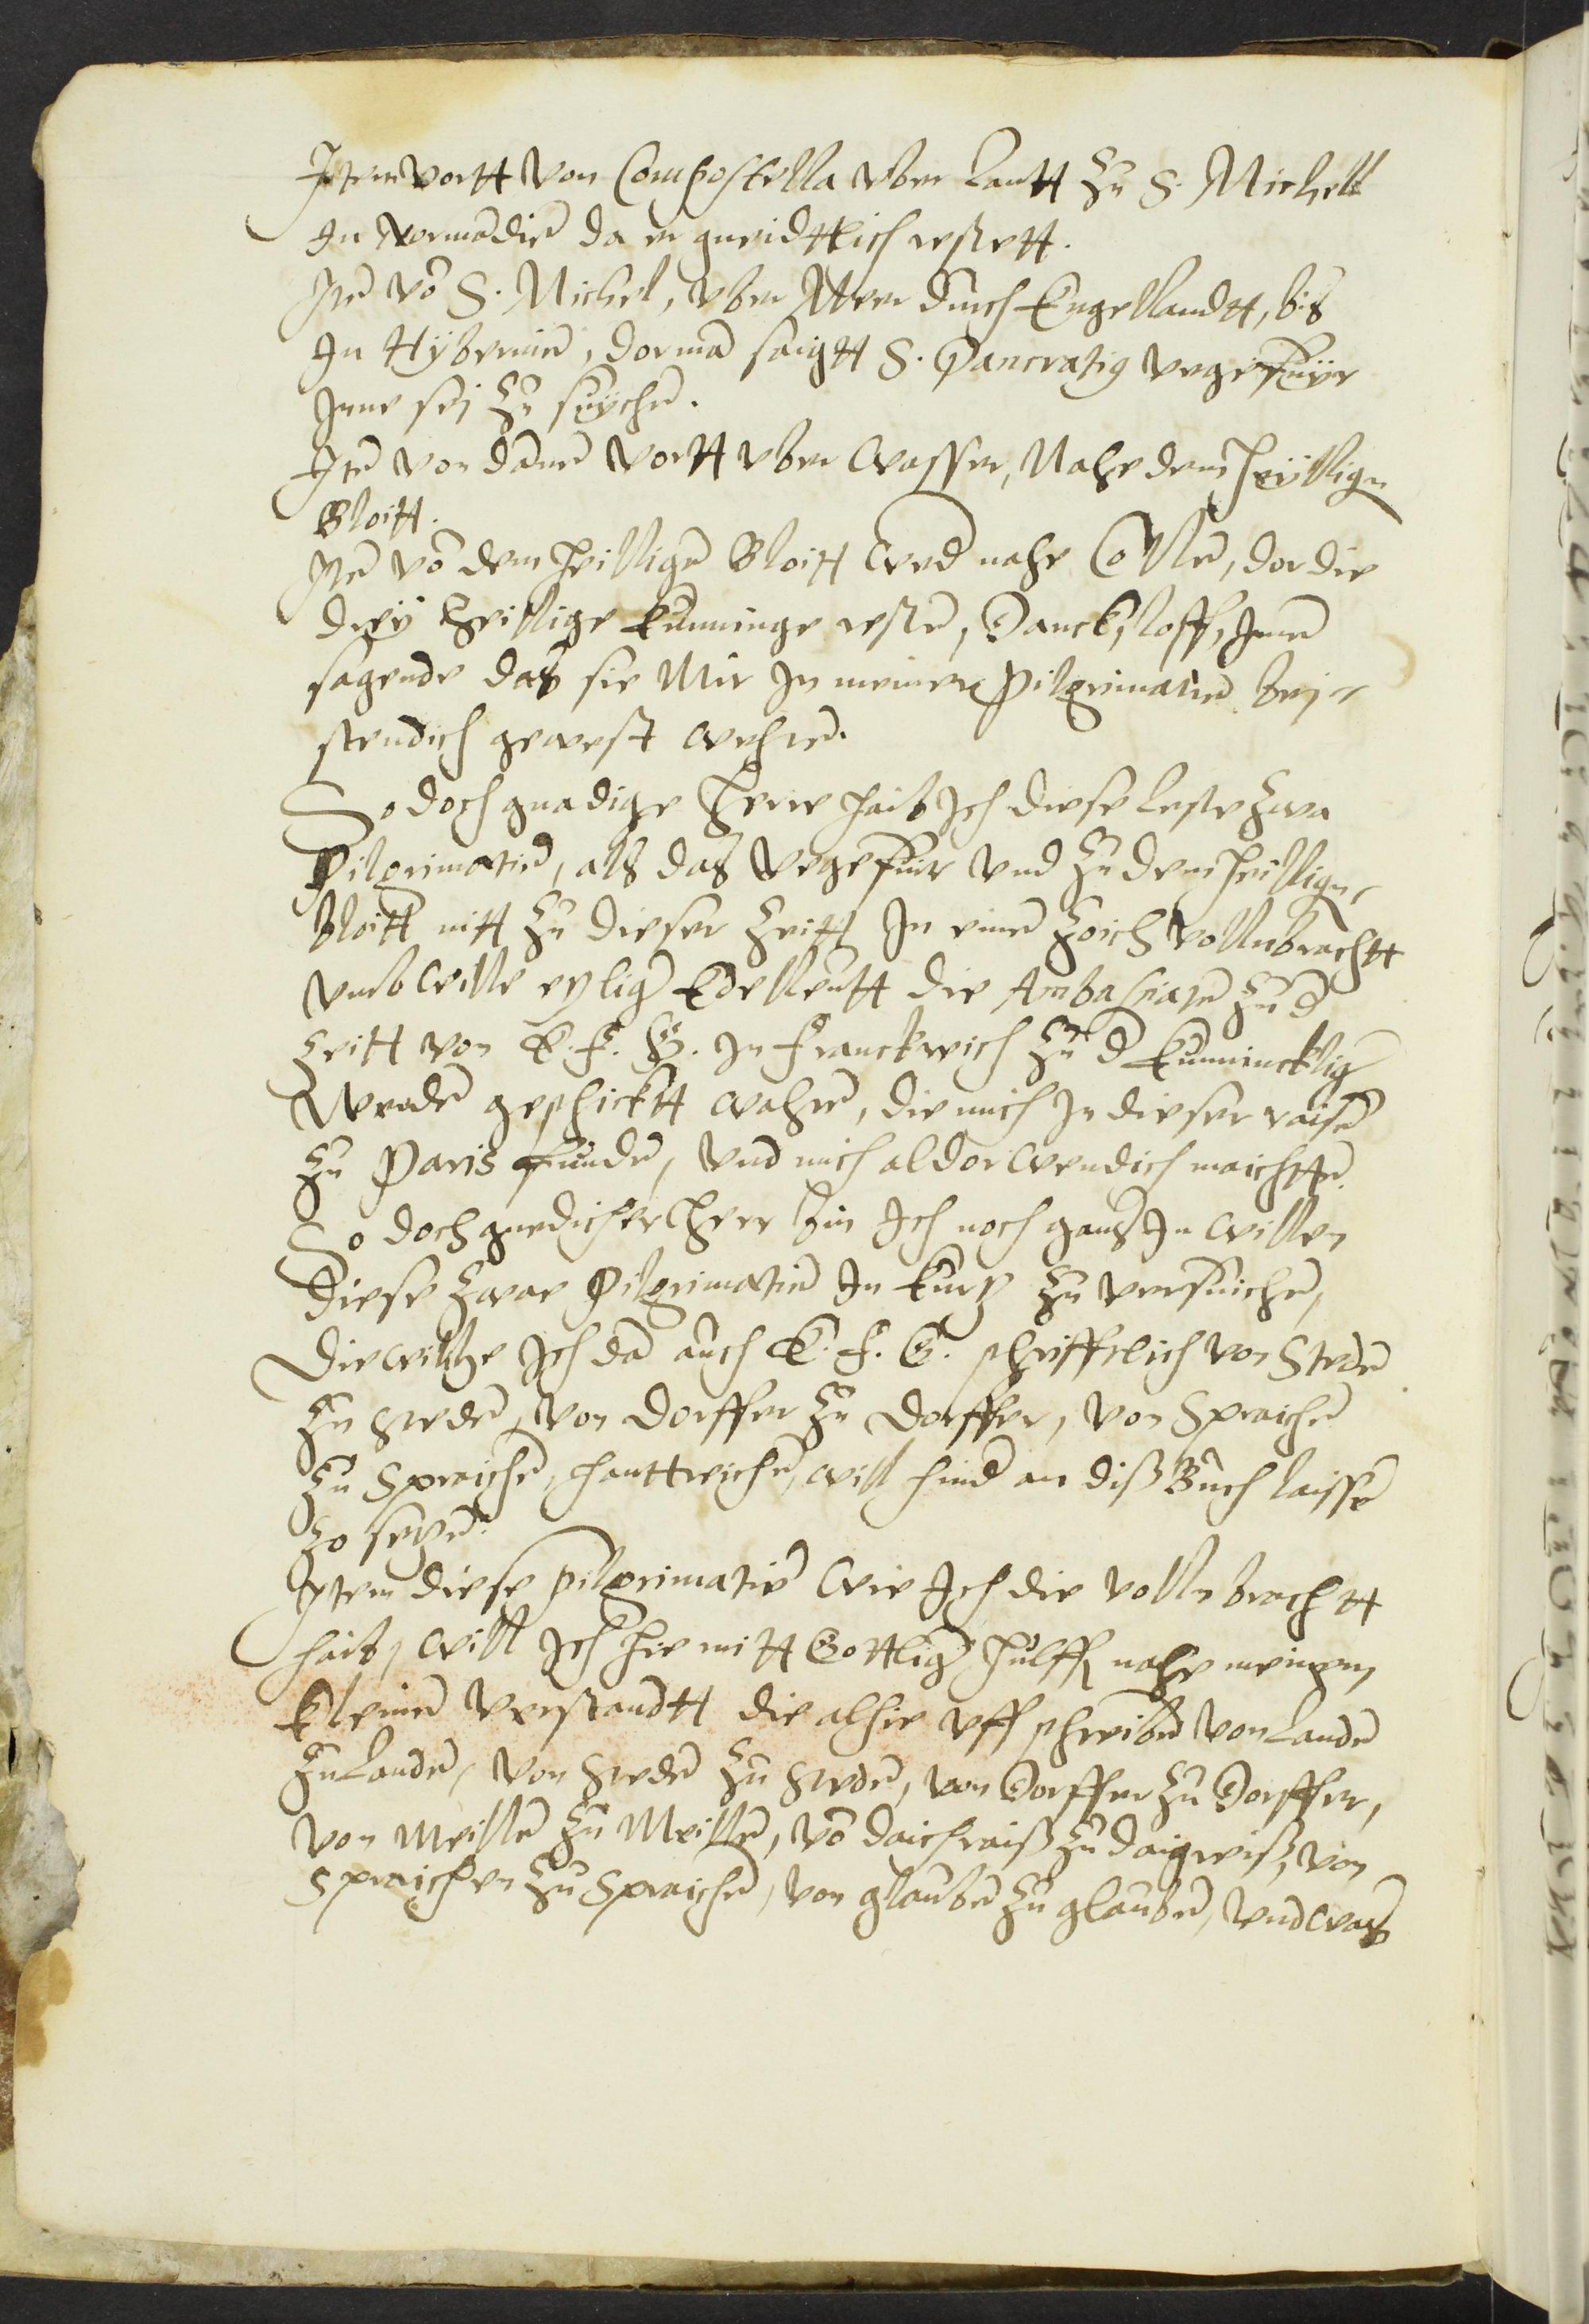 Item vortt von Compostella vber lantt zu S. Michell
In Normādiē da er gneidtlich restett.
Itē võ S. Michel, vber Meer durch Engellandtt, bis
In Hÿberniē, dormā saigtt S. Pancratig vegefuÿr
Inne sej zu suÿchē.
Itē von dānē vortt vber wasser, Nahe dem heÿlligen
Bloitt.
Itē võ dem heilligē Bloitt wed nahe Collē, dor die
dreÿ heillige kunninge restē, Danck, loff, Inne
sagende das sie Mir In meinen Pilgrimatiē bej=
stendich gewest wehrē.
So doch gnadige herre haib Ich diese leste zwa
Pilgrimatiē, als das vegefuir vnd zu dem heilligen
bloitt nitt zu dieser zeitt In einē zoich vollnbrachtt
vmb wille etzlig Edelleutt die Ambasiatē zu d
zeitt von E. F. G. In Franckreich zu d kunnincklig
werdē geschicktt wahrē, die mich In dieser raisē
zu Paris fundē, vnd mich aldor wendich maichttē.
So doch gnedicher herr bin Ich noch gantz In willen
diese zwae Pilgrimatiē In kurtz zu versuichē,
die wilche Ich dā auch E. F. G. schrifftlich von Stedē
zu stedē, von dorffer zu dorffer, von Spraichē
zu Spraichē, hanttreichē, will hind an diß Buch laissē
zo setzē.
Item diese pilgrimatiē wie Ich die vollnbrachtt
haib, will Ich hie mitt Gottlig hulff nahe meinem
kleinē verstandtt die alhie vff schreibē von Landē
zu Landē, von stedē zu stedē, von Dorffer zu Dorffer,
von Meillē zu Meillē, võ daichraiß zu daigreiß, von
Spraichen zu Spraichē, von glaubē zu glaubē, vnd was